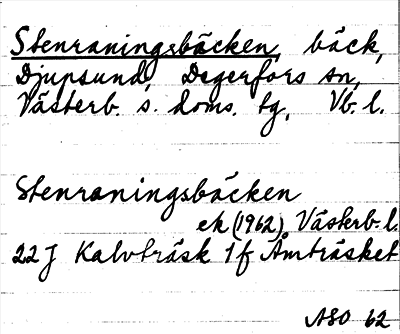 Stenraningsbäcken, bäck,
Djupsund, Degerfors sn,
Västerb. s. doms. tg, Vb. l.
Stenraningsbäcken
ek (1962), Västerb. l.
22 J Kalvträsk 1 f Åmträsket
ASO 62